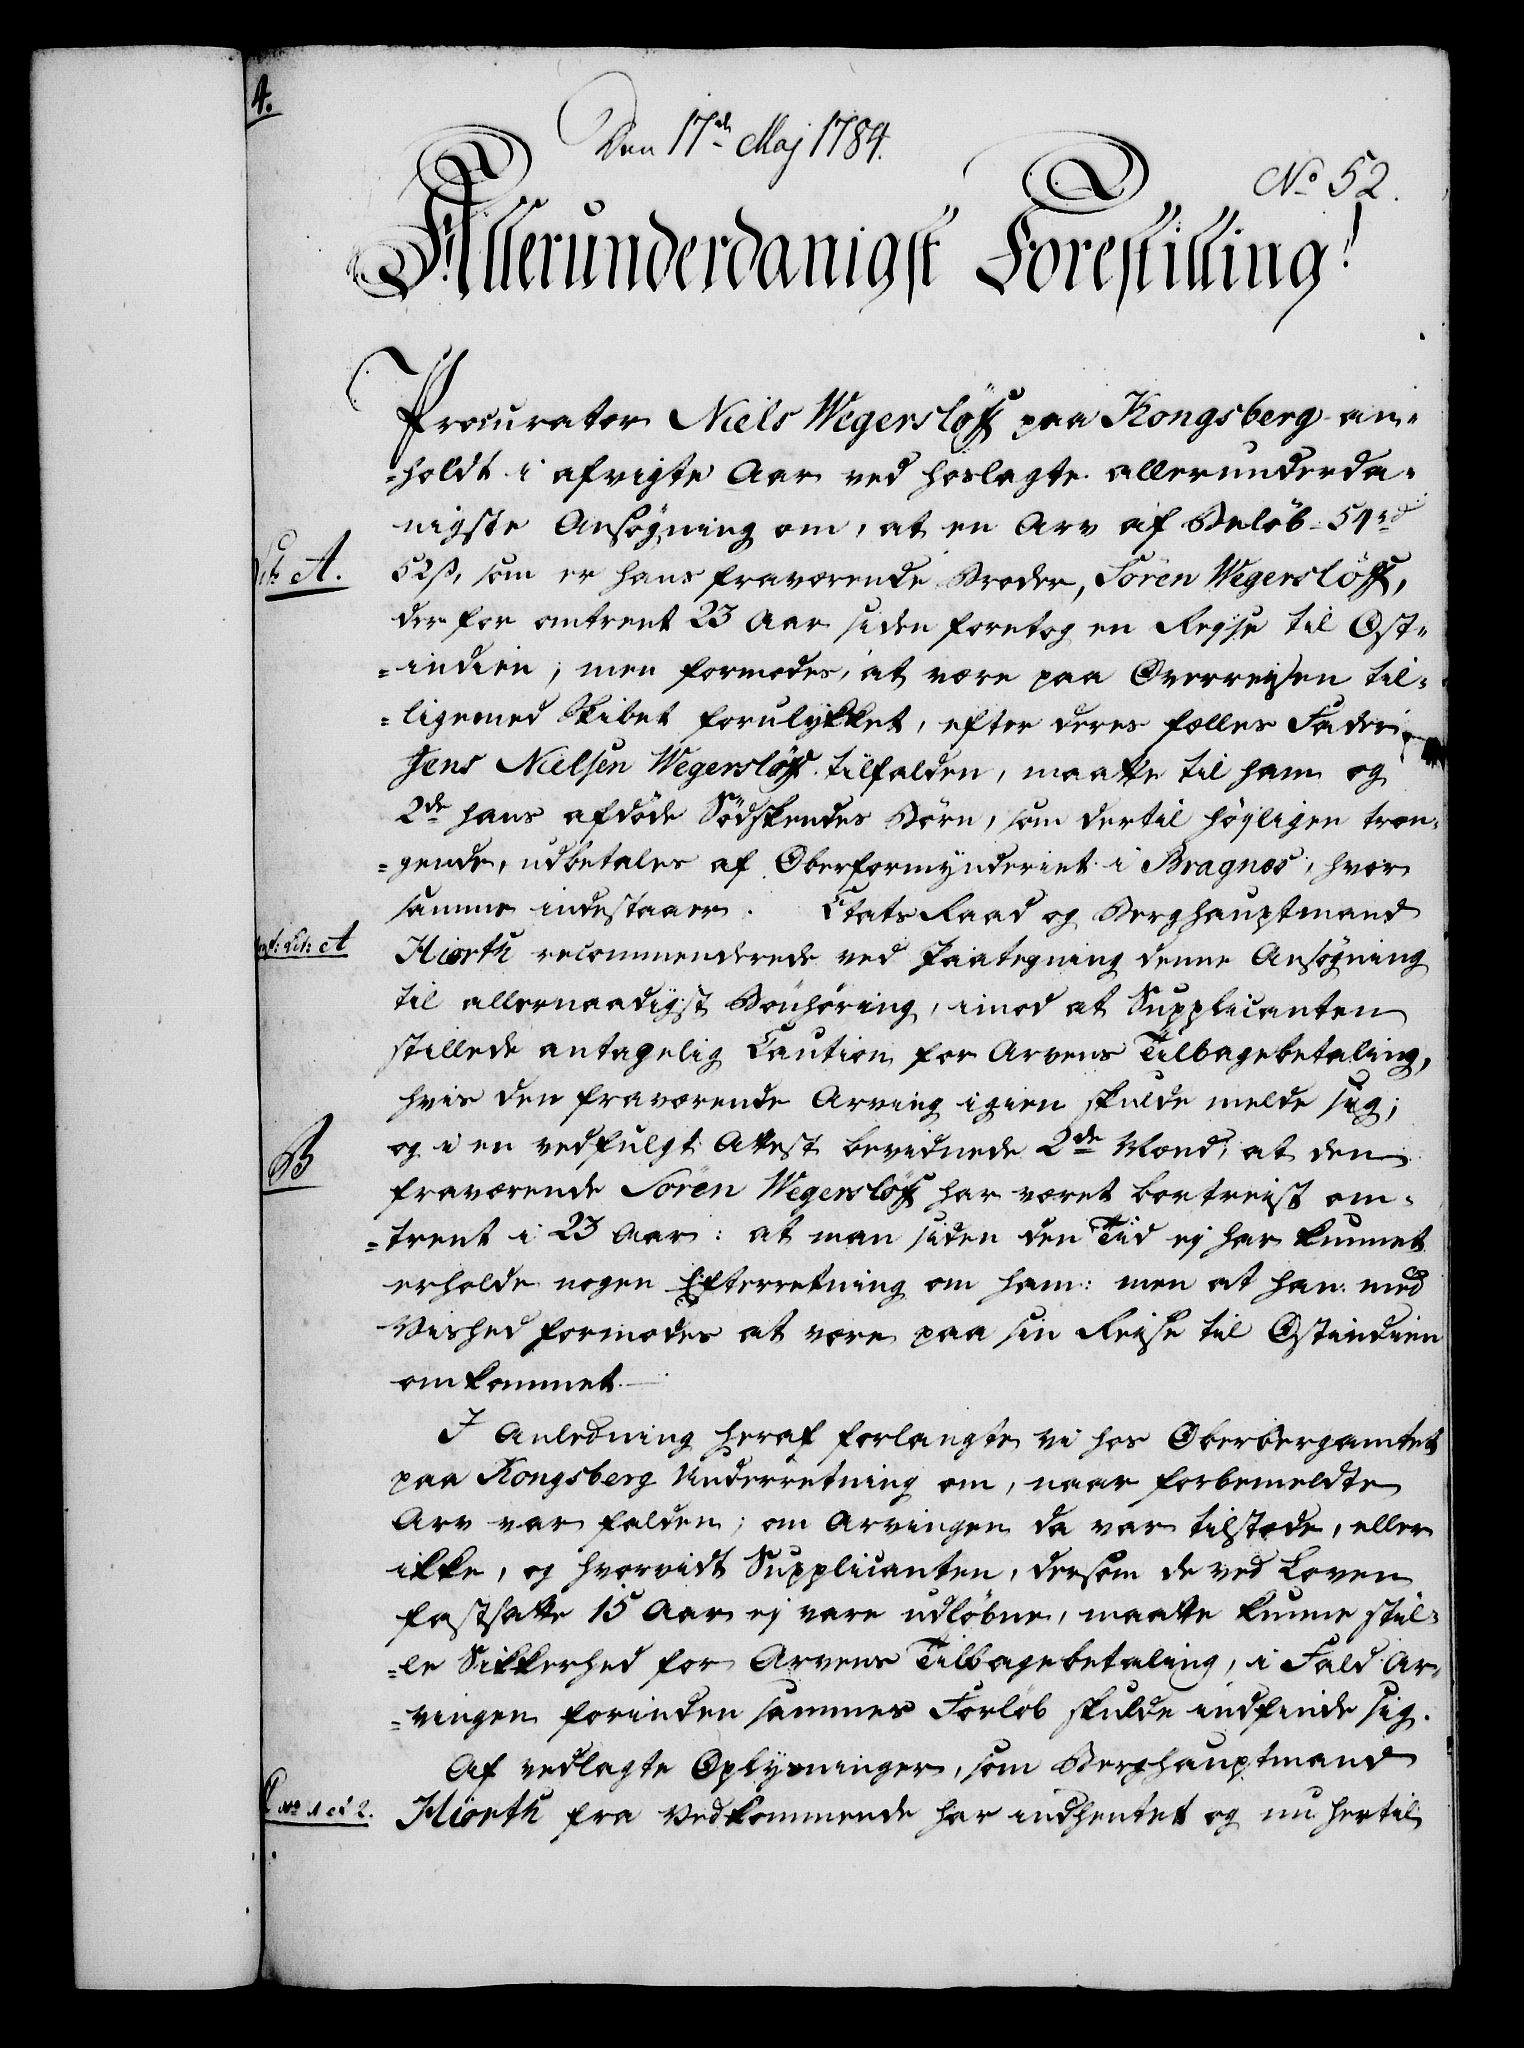 4.
Den 17de Maj 1784.
No 52.
Allerunderdanigst Forestilling!
Procurator Niels Wegersløff paa Kongsberg an-
-holdt i afvigte Aar ved hoslagte allerunderda-
nigste Ansøgning om, at en Arv af Beløb 54rd
Lit: A.
52ß, som er hans fraværende Broder, Sören Wegerslöff,
der for omtrent 23 Aar siden foretog en Rejse til Ost-
-indien, men formodes, at være paa Overreisen til-
-ligemed Skibet forulykket, efter deres fælles Fader
Jens Nielsen Wegerslöff tilfalden, maatte til ham og
2de hans afdöde Södskendes Börn, som dertil höyligen træn-
-gende, udbetales af Oberformynderiet i Bragnæs, hvor
samme indestaaer. Etats Raad og Berghauptmand
Lit: A
Hiorth recommenderede ved Paategning denne Ansøgning
til allernaadigst Bönhöring, imod at Supplicanten
stillede antagelig Caution for Arvens Tilbagebetaling,
hvis den fraværende Arving igien skulde melde sig;
B
og i en vedfulgt Attest bevidnede 2de Mænd, at den
fraværende Sören Wegerslöff har været bortreist om-
-trent i 23 Aar: at man siden den Tiid ej har kunnet
erholde nogen Efterretning om ham: men at han med
Vished formodes at være paa sin Reise til Ostindien
omkommet.
I Anledning heraf forlangte vi hos Oberbergamtet
paa Kongsberg Underretning om, naar forbemeldte
Arv var falden; om Arvingen da var tilstæde, eller
ikke, og hvorvidt Supplicanten, dersom de ved Loven
fastsatte 15 Aar ej vare udløbne, maatte kunne stil-
-le Sikkerhed for Arvens Tilbagebetaling, i Fald Ar-
-vingen forinden sammes Forløb skulde indfinde sig.
Af vedlagte Oplysninger, som Berghauptmand
C No 1 et 2.
Hiorth fra Vedkommende har indhentet og nu hertil